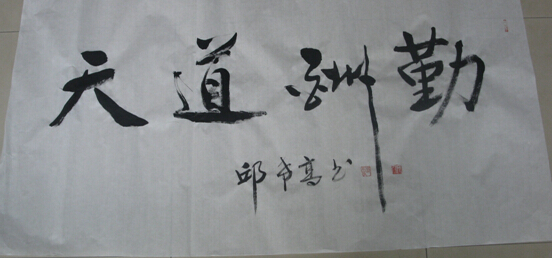 天道酬勤
邱希高书